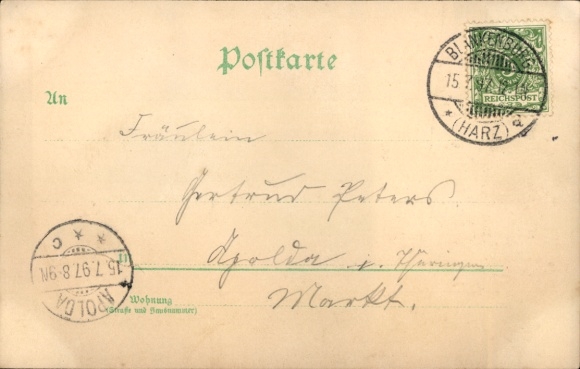 Postkarte
BLANKENBURG
15.7.97
* (HARZ)
REICHSPOST
An
Fräulein
Gertrud Peters
Apolda i. Thüringen
Markt.
Wohnung
(Straße und Hausnummer)
* * C
15.7.97.8-9N
APOLDA